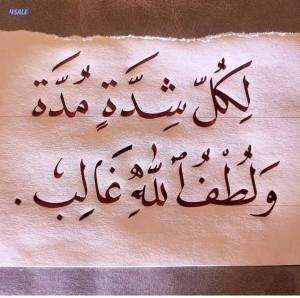 4SALE
لِكُلِّ شِدَّةٍ مُدَّة
وَلُطْفُ ٱللَّهِ غَالِب .